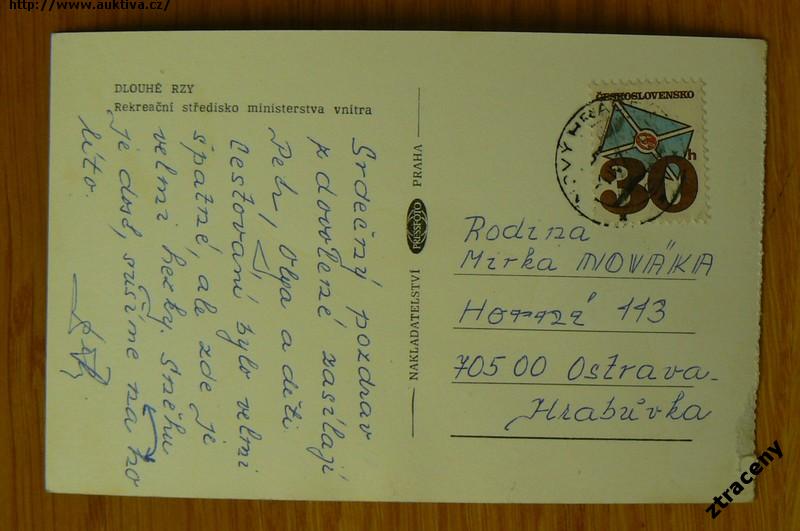 http://www.auktiva.cz/
DLOUHÉ RZY
Rekreační středisko ministerstva vnitra
Srdečný pozdrav
z dovolené zasílají
Petr, Olga a děti.
Cestování bylo velmi
špatné, ale zde je
velmi hezky. Sněhu
je dost, sušíme na to
líto.
NAKLADATELSTVÍ PRESSFOTO PRAHA
ČESKOSLOVENSKO
30h
NOVÝ HRA
Rodina
Mirka NOVÁKA
113
705 00 Ostrava-
Hrabůvka
ztraceny